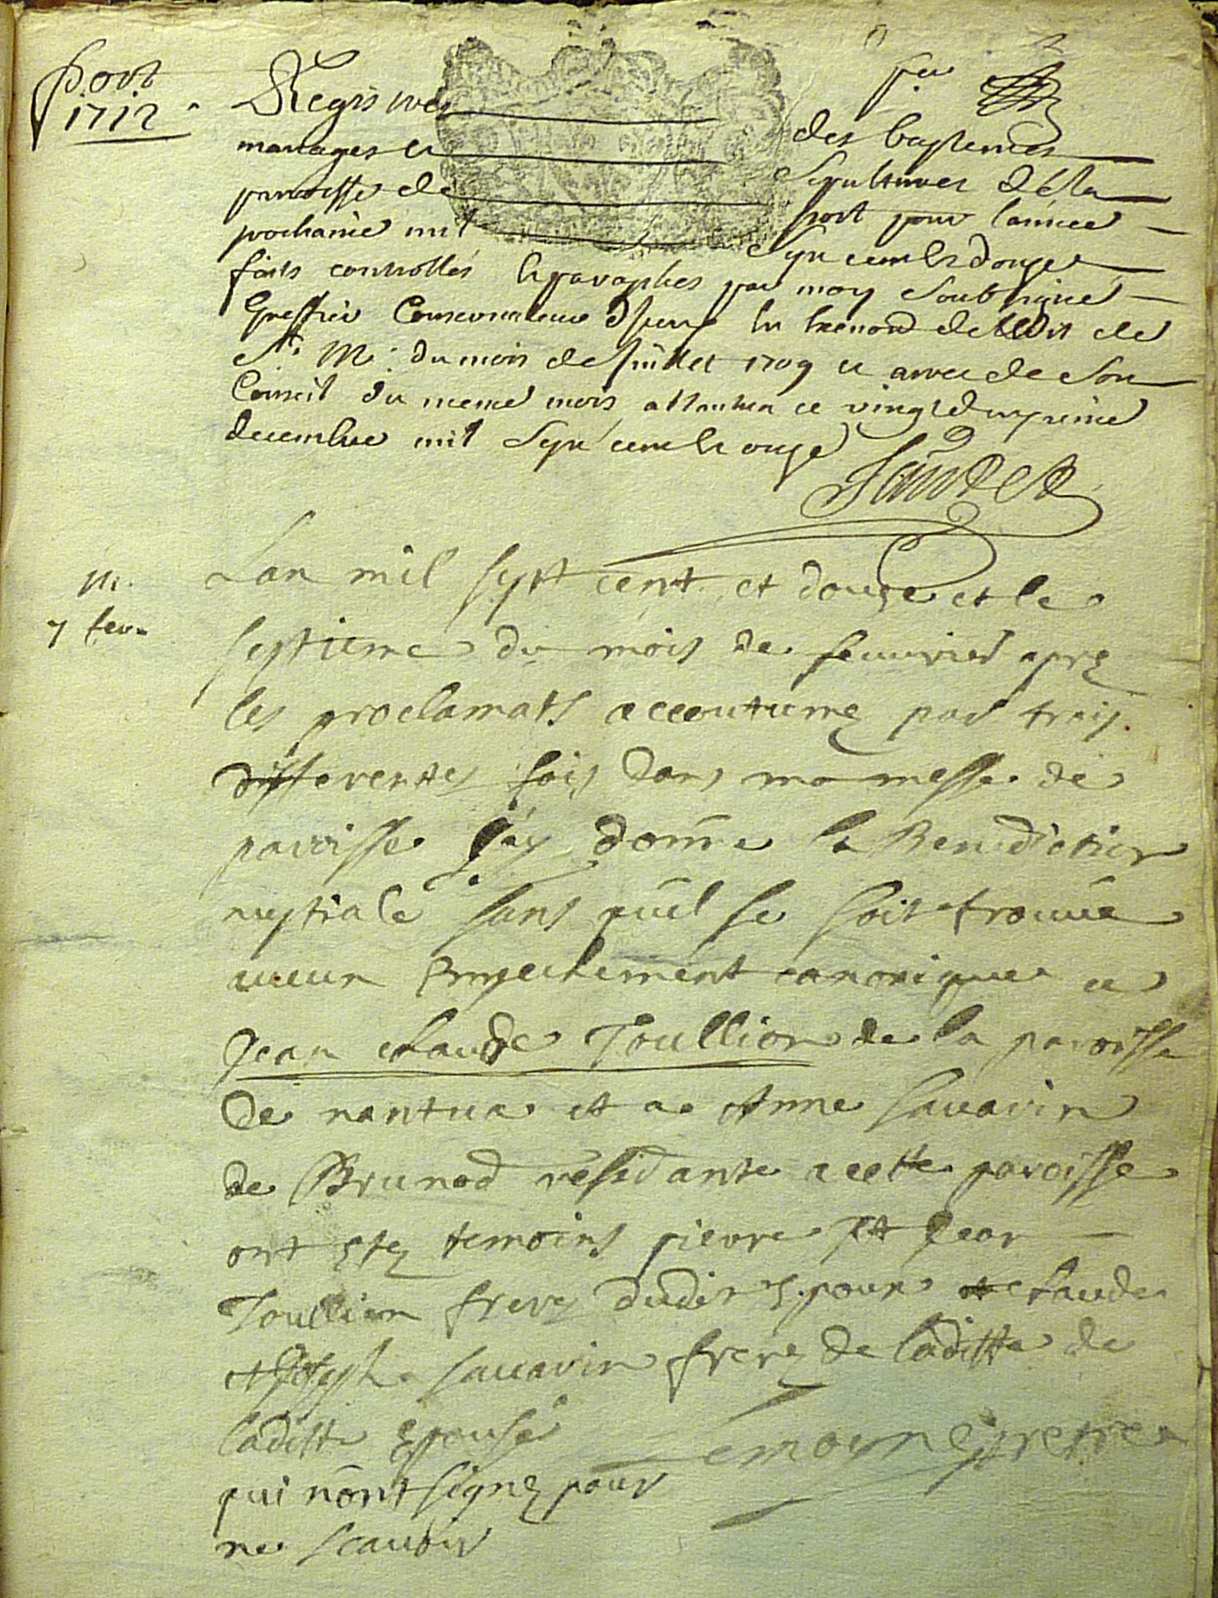 Port
1712
Registre des baptemes
mariages et Sepultures de la
paroisse de port pour lannee
prochaine mil Sept cents douze
fait controllés et paraphés par moy Soubsigné
Greffier Conservateur la de ledit de
Sa. M. du mois de Juillet 1709 et arrest de Son
Conseil du meme mois a ce vingt
decembre mil Sept cents onze
M.
7 fev.
Lan mil sept cent et douze et le
septieme du mois de feuvrier aprez
les proclamats accoutumez par trois
differentes fois dans ma messe de
paroisse j'ay donné la Benediction
nuptiale sans qu'il se soit trouvé
aucun Empechement canonique a
Jean claude Toullion de la paroisse
de nantua et a Anne savarin
de Brunod residante a cette paroisse
ont estez temoins pierre et Jean
Toullion freres dudit Epoux claude
et Joseph savarin freres de laditte de
laditte Epouse
qui n'ont signez pour
ne scavoir
Lemoyne pretre